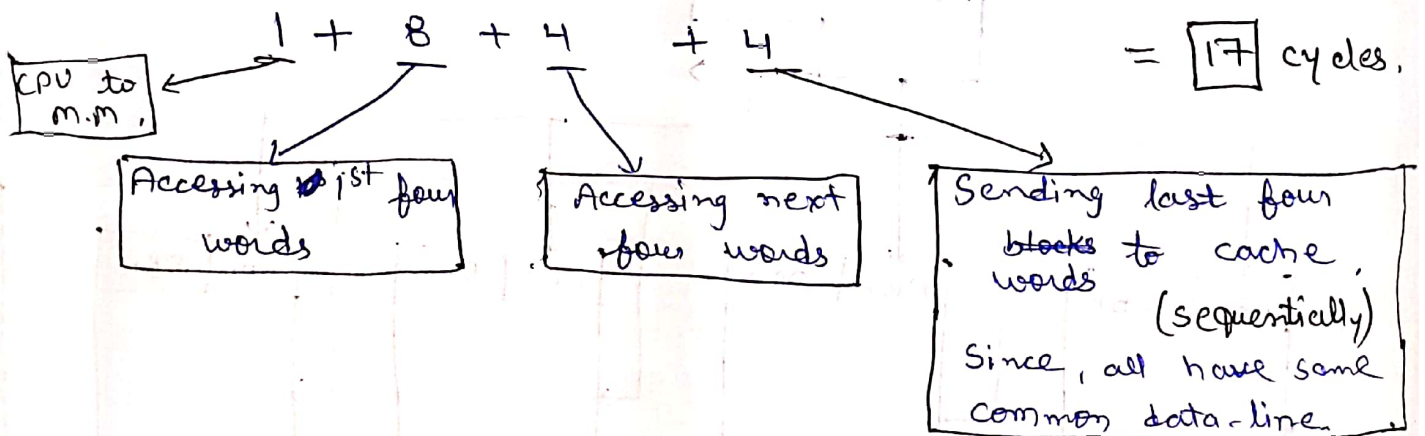 1 + 8 + 4 + 4 = 17 cycles.
CPU to
m.m.
Accessing 1st four
words
Accessing next
four words
Sending last four
blocks to cache,
words
(sequentially)
Since, all have same
common data-line.